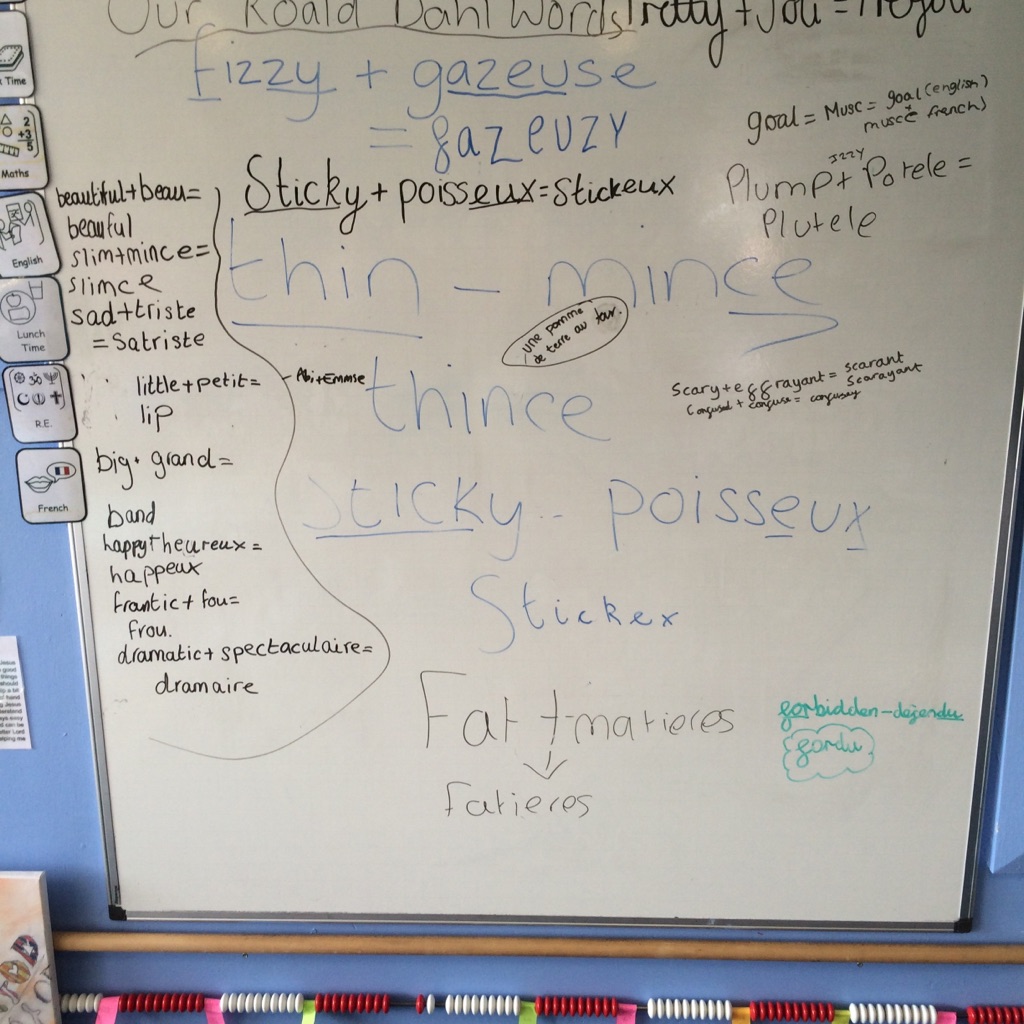 Our Roald Dahl Words
Pretty + Jou =
fizzy + gazeuse
= gazeuzy
goal = Musc = goal (english)
+
musce french)
Sticky + poisseux = Stickeux
Plump + Potele =
Jzzy
Plutele
beautiful + beau =
beauful
slim + mince =
slimce
sad + triste
= Satriste
little + petit =
lip
Abi + Emmse
big + grand =
band
happy + heureux =
happeux
frantic + fou =
frou.
dramatic + spectaculaire =
dramaire
thin - mince
une pomme
de terre au four.
thince
scary + effrayant = scarant
scarayant
Confused + confuse = confusey
Sticky - poisseux
Stickex
Fat + matieres
Fatieres
forbidden - defendu
fordu
Time
Maths
2
+3
5
English
Lunch
Time
R.E.
French